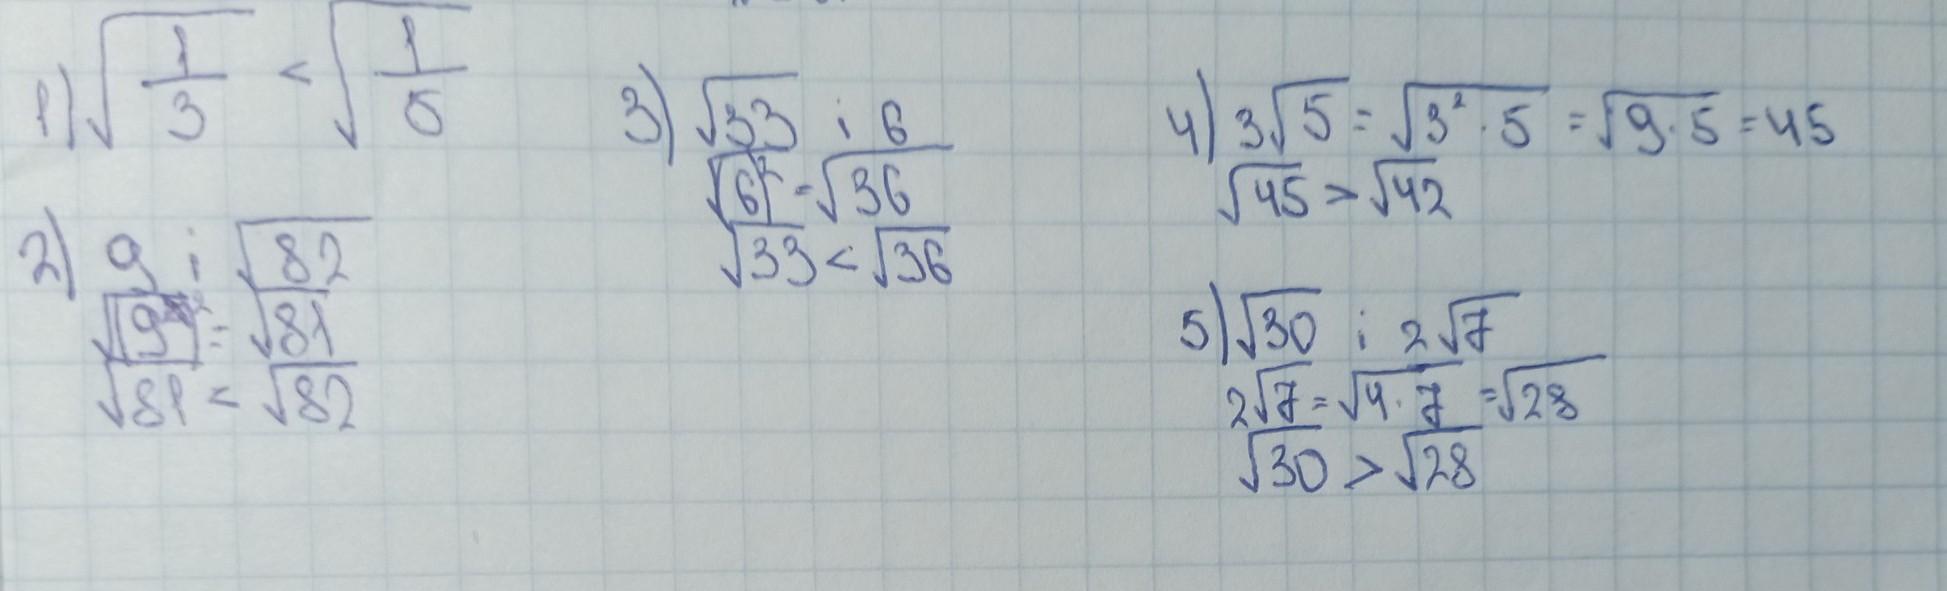 1) √(1/3) < √(1/5)
2) 9 і √82
√9² = √81
√81 < √82
3) √33 і 6
√6² = √36
√33 < √36
4) 3√5 = √(3² · 5) = √(9 · 5) = 45
√45 > √42
5) √30 і 2√7
2√7 = √(4 · 7) = √28
√30 > √28